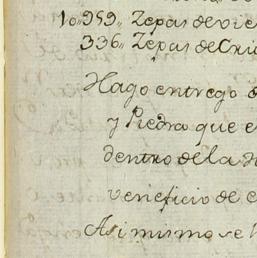 10..959,, Zepas de vie
336,, Zepas de Cri
Hago entrego d
y Piedra que e
dentro de la H
veneficio de c
Asi mismo se h